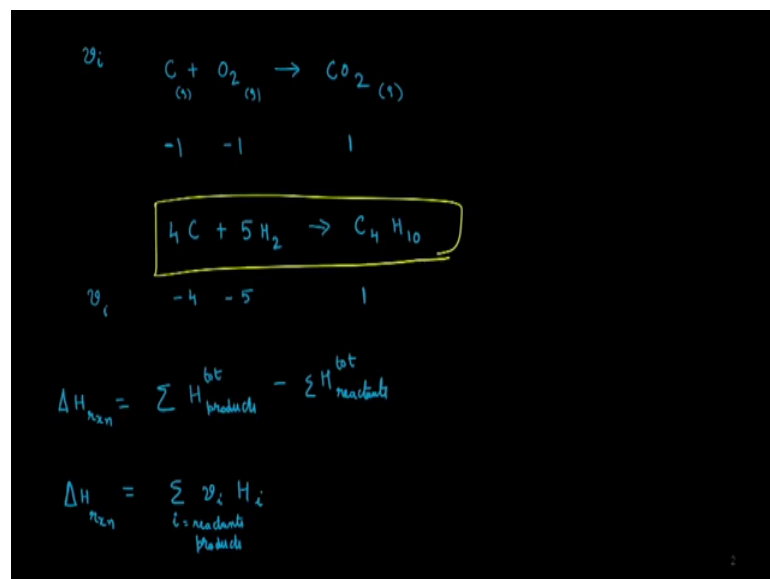 νi C + O2 → CO2 (g)
(s) (g)
-1 -1 1
4C + 5H2 → C4H10
νi -4 -5 1
ΔHrxn = Σ H^tot products - ΣH^tot reactants
ΔHrxn = Σ νi Hi
i = reactants
products
2